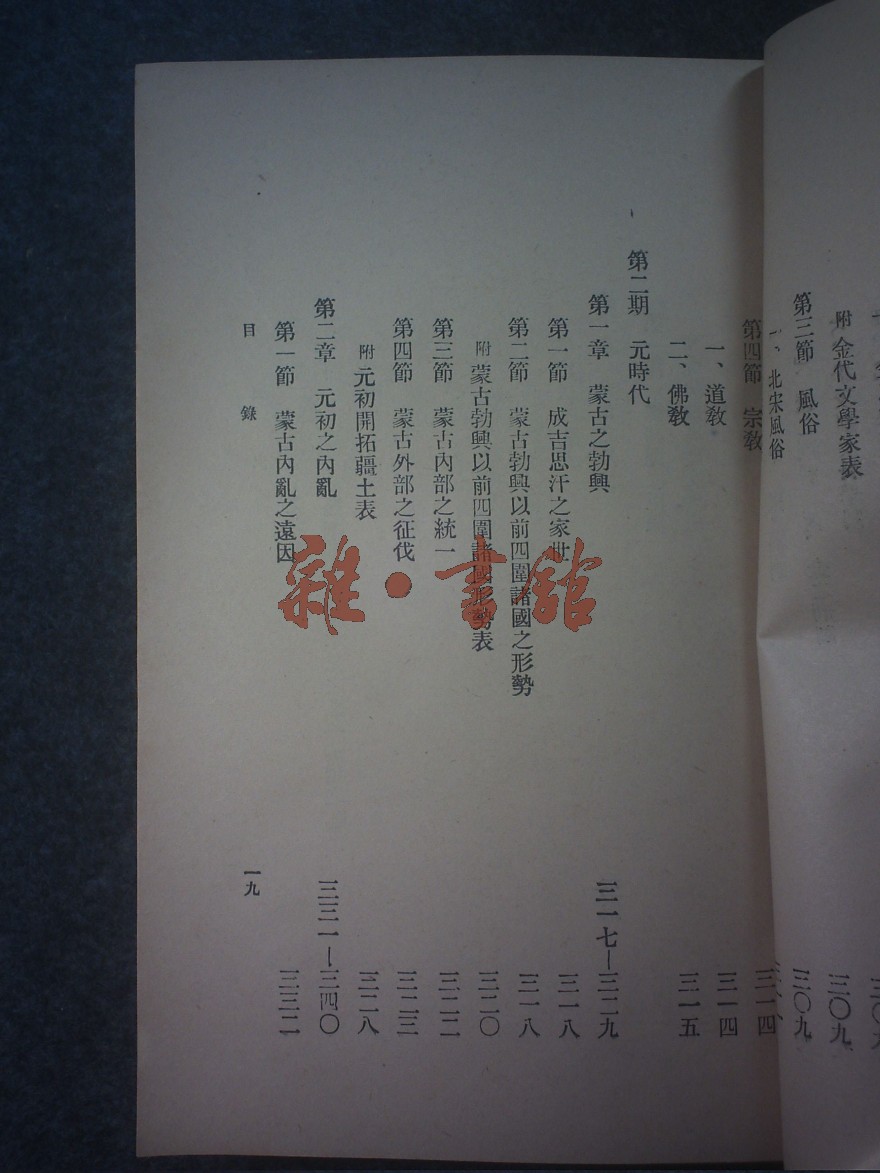 附 金代文學家表 三〇九
第三節 風俗 三〇九
一、北宋風俗
第四節 宗教 三一四
一、道教 三一四
二、佛教 三一五
第二期 元時代
第一章 蒙古之勃興 三一七—三二九
第一節 成吉思汗之家世 三一八
第二節 蒙古勃興以前四圍諸國之形勢 三一八
附 蒙古勃興以前四圍諸國形勢表 三二〇
第三節 蒙古內部之統一 三二二
第四節 蒙古外部之征伐 三二三
附 元初開拓疆土表 三二八
第二章 元初之內亂 三三一—三四〇
第一節 蒙古內亂之遠因 三三二
目錄 一九
雜·書館